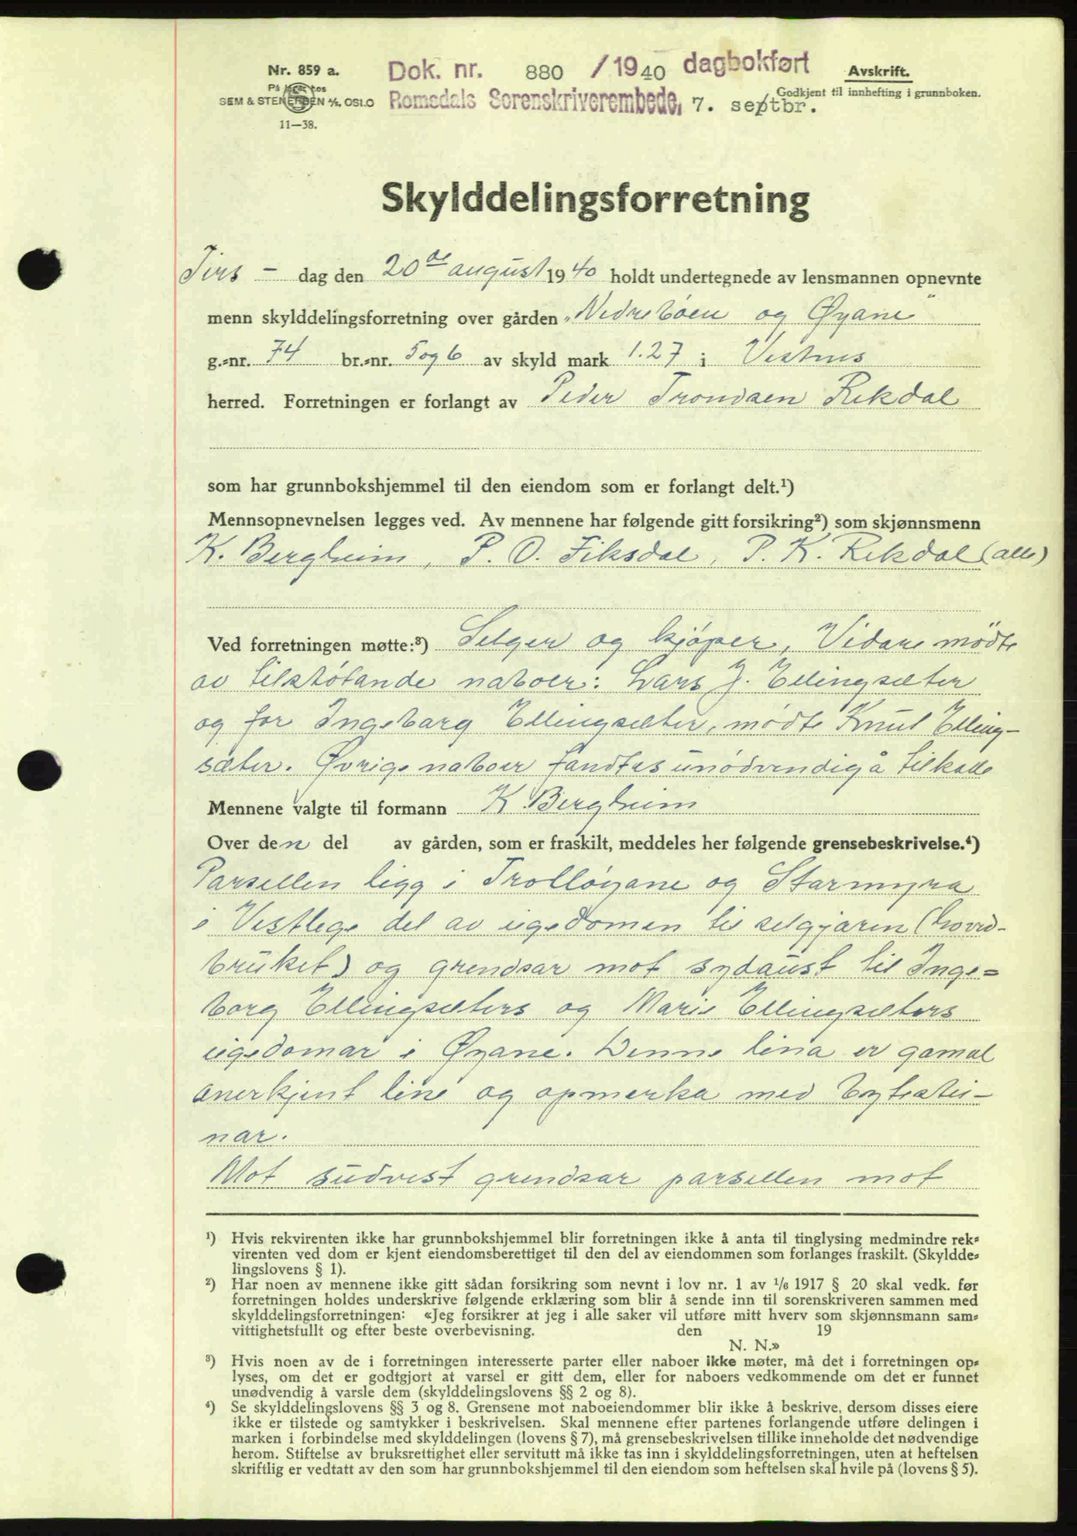 Nr. 859 a.
SEM & STENERSEN A/S, OSLO
11—38.
Dok. nr. 880 /1940 dagbokført
Romsdals Sorenskriverembede, 7. septbr.
Avskrift.
Godkjent til innhefting i grunnboken.
Skylddelingsforretning
Tirs – dag den 20de august 1940 holdt undertegnede av lensmannen opnevnte
menn skylddelingsforretning over gården „Nedrebøen og Øyane"
g.-nr. 74 br.-nr. 5 og 6 av skyld mark 1.27 i Vestnes
herred. Forretningen er forlangt av Peder Trondsen Rekdal
som har grunnbokshjemmel til den eiendom som er forlangt delt.¹)
Mennsopnevnelsen legges ved. Av mennene har følgende gitt forsikring²) som skjønnsmenn
K. Bergheim, P. O. Fiksdal, P. K. Rekdal (alle)
Ved forretningen møtte:³) Selger og kjøper, Vidare mødte
av tilstøtande naboer: Lars J. Ellingsæter
og for Ingeborg Ellingsæter, mødte Knut Elling-
sæter. Øvrige naboer fandtes unødvendig å tilkade
Mennene valgte til formann K. Bergheim
Over den del av gården, som er fraskilt, meddeles her følgende grensebeskrivelse.⁴)
Parsellen ligg i Trolløyane og Starmyra
i Vestlege del av eigedomen til seljaren (hovud-
bruket) og grendsar mot sydaust til Inge-
borg Ellingsæters og Marie Ellingsæters
eigedomar i Øyane. Denne lina er gamal
anerkjent line og opmerka med bytestei-
nar.
Mot sudvest grendsar parsellen mot
¹) Hvis rekvirenten ikke har grunnbokshjemmel blir forretningen ikke å anta til tinglysing medmindre rek-
virenten ved dom er kjent eiendomsberettiget til den del av eiendommen som forlanges fraskilt. (Skyldde-
lingslovens § 1).
²) Har noen av mennene ikke gitt sådan forsikring som nevnt i lov nr. 1 av 1/6 1917 § 20 skal vedk. før
forretningen holdes underskrive følgende erklæring som blir å sende inn til sorenskriveren sammen med
skylddelingsforretningen: «Jeg forsikrer at jeg i alle saker vil utføre mitt hverv som skjønnsmann sam-
vittighetsfullt og efter beste overbevisning. den 19
N. N.»
³) Hvis noen av de i forretningen interesserte parter eller naboer ikke møter, må det i forretningen op-
lyses, om det er godtgjort at varsel er gitt dem, eller for naboers vedkommende om det er funnet
unødvendig å varsle dem (skylddelingslovens §§ 2 og 8).
⁴) Se skylddelingslovens §§ 3 og 8. Grensene mot naboeiendommer blir ikke å beskrive, dersom disses eiere
ikke er tilstede og samtykker i beskrivelsen. Skal mennene efter partenes forlangende utføre delingen i
marken i forbindelse med skylddelingen (lovens § 7), må grensebeskrivelsen tillike inneholde det nødvendige
herom. Stiftelse av bruksrettighet eller servitutt må ikke tas inn i skylddelingsforretningen, uten at heftelsen
skriftlig er vedtatt av den som har grunnbokshjemmel til den eiendom som heftelsen skal hvile på (lovens § 5).